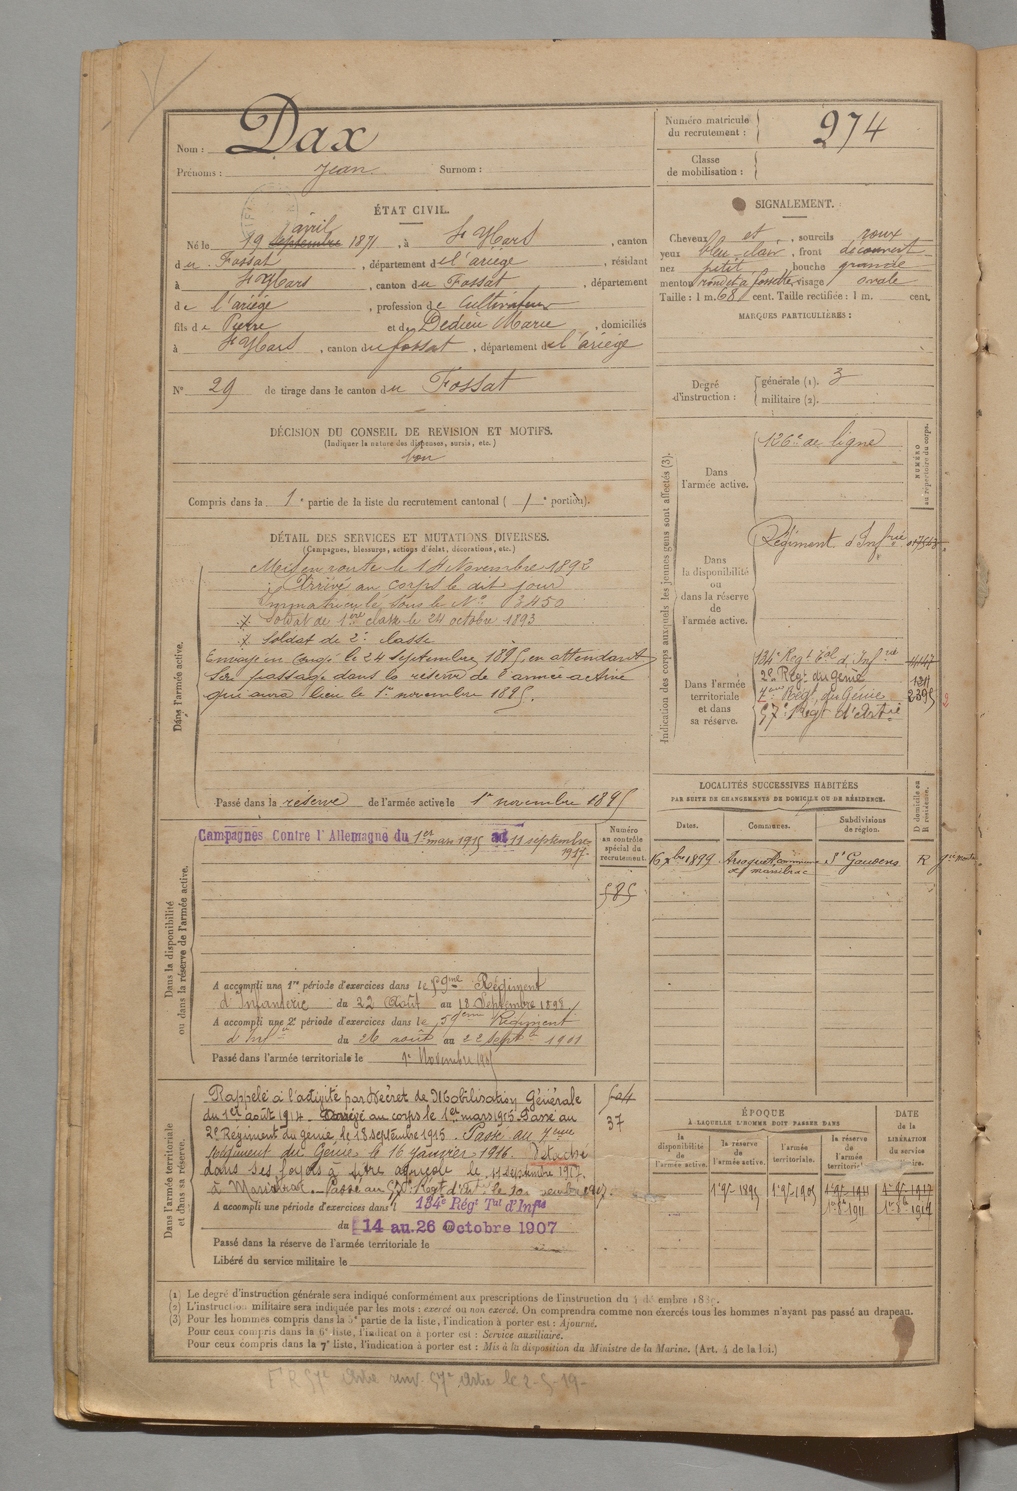 Nom : Dax
Prénoms : Jean Surnom :
Numéro matricule du recrutement : 274
Classe de mobilisation :
ÉTAT CIVIL.
avril
Né le 19 septembre 1871, à St Ybars, canton
du Fossat, département de l'ariège, résidant
à St Ybars, canton du Fossat, département
de l'ariège, profession de Cultivateur
fils de Pierre et de Dedieu Marie, domiciliés
à St Ybars, canton du fossat, département de l'ariège
N° 29 de tirage dans le canton du Fossat
SIGNALEMENT.
Cheveux et, sourcils roux
yeux bleu clair, front découvert
nez petit, bouche grande
menton rond et à fossette, visage ovale
Taille : 1 m. 68 cent. Taille rectifiée : 1 m. cent.
MARQUES PARTICULIÈRES :
Degré d'instruction : générale (1). 3
militaire (2).
DÉCISION DU CONSEIL DE REVISION ET MOTIFS.
(Indiquer la nature des dispenses, sursis, etc.)
bon
Compris dans la 1e partie de la liste du recrutement cantonal ( 1e portion).
DÉTAIL DES SERVICES ET MUTATIONS DIVERSES.
(Campagnes, blessures, actions d'éclat, décorations, etc.)
Dans l'armée active.
Mis en route le 14 Novembre 1892
Arrivé au corps le dit jour
Immatriculé sous le N° 3450
Soldat de 1ère classe le 24 octobre 1893
Soldat de 2e classe
Envoyé en Congé le 24 septembre 1895 en attendant
son passage dans la réserve de l'armée active
qui aura lieu le 1er novembre 1895.
Passé dans la réserve de l'armée active le 1er novembre 1895
Indication des corps auxquels les jeunes gens sont affectés (3).
NUMÉRO au répertoire du corps.
Dans l'armée active.
126e de ligne
Dans la disponibilité ou dans la réserve de l'armée active.
Régiment d'Infrie
Dans l'armée territoriale et dans sa réserve.
134e Régt Tal d'Infrie
2e Régt du génie
7ème Régt du Génie 2395
57e Régt d'Artie
Dans la disponibilité ou dans la réserve de l'armée active.
Campagnes Contre l'Allemagne du 1er mars 1915 au 11 septembre 1917.
Numéro au contrôle spécial du recrutement.
585
A accompli une 1re période d'exercices dans le 59me Régiment
d'Infanterie du 22 Août au 18 Septembre 1898
A accompli une 2e période d'exercices dans le 59ème Régiment
d'Infie du 26 août au 22 septbre 1901
Passé dans l'armée territoriale le 1er Novembre 1905
LOCALITÉS SUCCESSIVES HABITÉES
PAR SUITE DE CHANGEMENTS DE DOMICILE OU DE RÉSIDENCE.
Dates. Communes. Subdivisions de région. D domicile ou R résidence.
16 xbre 1899 commune de St Gaudens R
Dans l'armée territoriale et dans sa réserve.
Rappelé à l'activité par Décret de Mobilisation Générale
du 1er août 1914. Arrivé au corps le 1er mars 1915. Passé au
2e Régiment du génie, le 18 septembre 1915. Passé au 7ème
régiment du Génie le 16 janvier 1916. Détaché
dans ses foyers à titre agricole le 11 septembre 1917
à Passé au 57e Régt d'Artie le 1917
504
37
A accompli une période d'exercices dans l 134e Régt Tal d'Infie
du 14 au 26 Octobre 1907
Passé dans la réserve de l'armée territoriale le
Libéré du service militaire le
ÉPOQUE
À LAQUELLE L'HOMME DOIT PASSER DANS
DATE de la LIBÉRATION du service
la disponibilité de l'armée active. la réserve de l'armée active. l'armée territoriale. la réserve de l'armée
1er 9bre 1895 1er 9bre 1905 1er 9bre 1911 1er 9bre 1917
1er 8bre 1911 1er 8bre 1917
(1) Le degré d'instruction générale sera indiqué conformément aux prescriptions de l'instruction du
(2) L'instruction militaire sera indiquée par les mots : exercé ou non exercé. On comprendra comme non exercés tous les hommes n'ayant pas passé au drapeau.
(3) Pour les hommes compris dans la 5e partie de la liste, l'indication à porter est : Ajourné.
Pour ceux compris dans la 6e liste, l'indication à porter est : Service auxiliaire.
Pour ceux compris dans la 7e liste, l'indication à porter est : Mis à la disposition du Ministre de la Marine. (Art. 4 de la loi.)